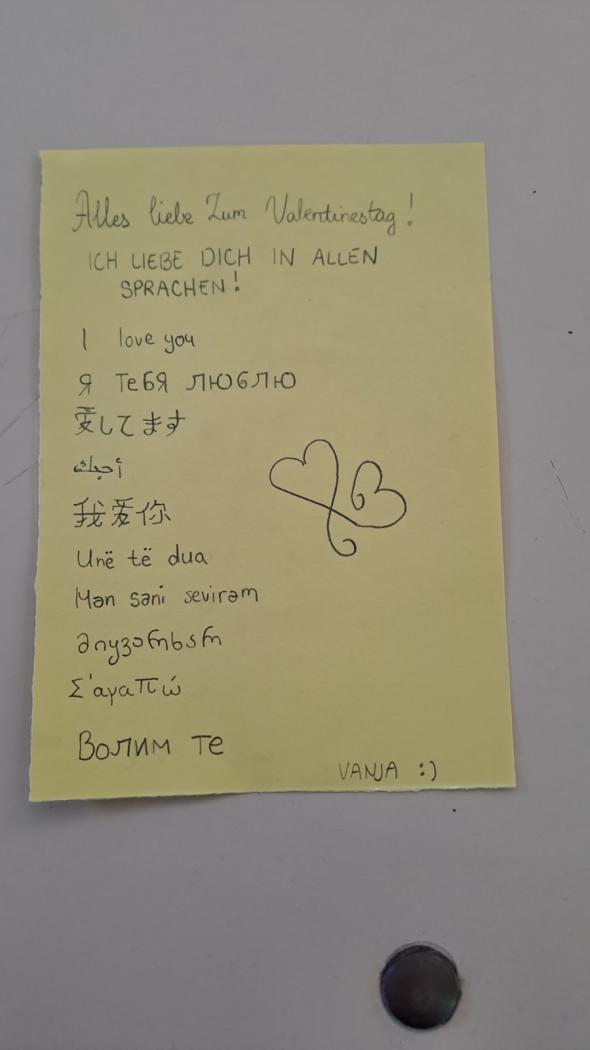 Alles liebe Zum Valentinestag!
ICH LIEBE DICH IN ALLEN
SPRACHEN!
I love you
Я тебЯ ЛЮбЛЮ
愛してます
أحبك
我爱你
Unë të dua
Mən səni sevirəm
მიყვარხარ
Σ'αγαπώ
Волим те
VANJA :)